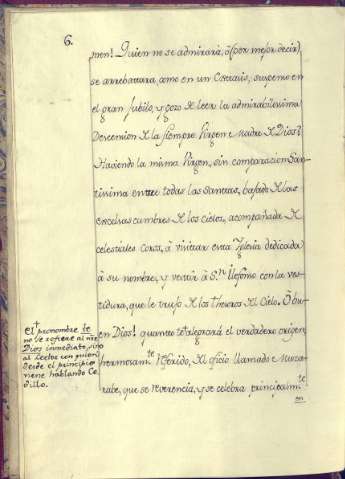 6.
men! Quien no se admirará, ó (por mejor decir),
se arrebattara, como en un Extasis, suspenso en
el gran Jubilo, y gozo de leer la admirabilissima
Descension de la siempre Virgen e Madre de Dios?
Haviendo la misma Virgen, sin comparacion San-
tissima entre todas las Sanctas, bajado de las
excelsas cumbres de los cielos, acompañada de
celestiales Coros, á visitar esta Iglesia dedicada
á su nombre, y vestir á Sn. Ilefonso con la ves-
tidura, que le trujo de los thesoros del Cielo. O bu-
en Dios! quanto te alegrará el verdadero origen
hermosamte. referido, del oficio llamado e Muza-
rabe, que se reverencia, y se celebra principalmte.
en
El pronombre te
no se refiere al nre.
Dios inmediato, sino
al Lector con quien
desde el principio
viene hablando Ce-
dillo.